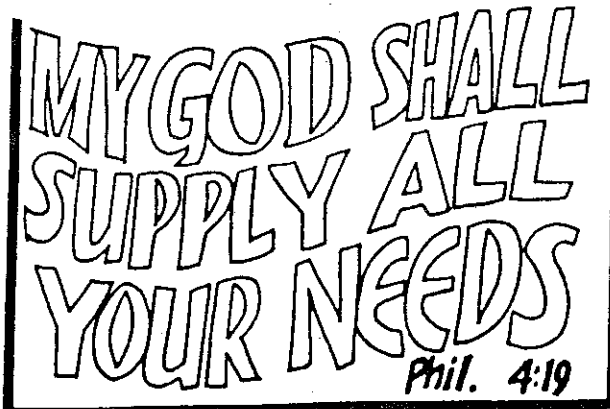 MY GOD SHALL
SUPPLY ALL
YOUR NEEDS
Phil. 4:19